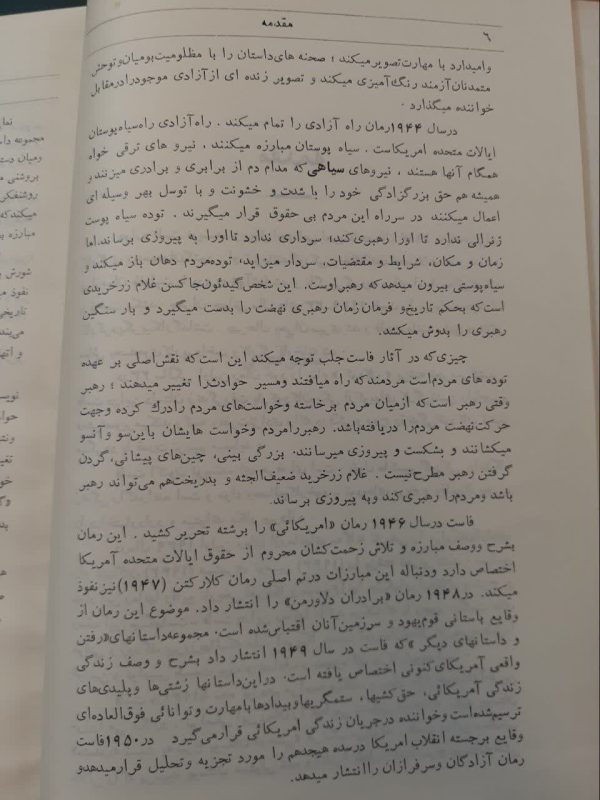 ٦
مقدمه
وامیدارد با مهارت تصویر میکند ؛ صحنه های داستان را با مظلومیت بومیان و توحش
متمدنان آزمند رنگ آمیزی میکند و تصویر زنده ای از آزادی موجود را در مقابل
خواننده میگذارد .
در سال ۱۹۴۴ رمان راه آزادی را تمام میکند . راه آزادی راه سیاه پوستان
ایالات متحده امریکاست . سیاه پوستان مبارزه میکنند ، نیرو های ترقی خواه
همگام آنها هستند ، نیروهای سیاهی که مدام دم از برابری و برادری میزنند و
همیشه هم حق بزرگزادگی خود را با شدت و خشونت و با توسل بهر وسیله ای
اعمال میکنند در سر راه این مردم بی حقوق قرار میگیرند . توده سیاه پوست
ژنرالی ندارد تا اورا رهبری کند؛ سرداری ندارد تا اورا به پیروزی برساند. اما
زمان و مکان، شرایط و مقتضیات، سردار میزاید، توده مردم دهان باز میکند و
سیاه پوستی بیرون میدهد که رهبر اوست . این شخص گیدئون جاکسن غلام زرخریدی
است که بحکم تاریخ و فرمان زمان رهبری نهضت را بدست میگیرد و بار سنگین
رهبری را بدوش میکشد.
چیزی که در آثار فاست جلب توجه میکند این است که نقش اصلی بر عهده
توده های مردم است مردمند که راه میافتند و مسیر حوادث را تغییر میدهند ؛ رهبر
وقتی رهبر است که از میان مردم برخاسته و خواست های مردم را درك کرده و جهت
حرکت نهضت مردم را دریافته باشد. رهبر را مردم و خواست هایشان باین سو و آنسو
میکشانند و بشکست و پیروزی میرسانند. بزرگی بینی، چین های پیشانی، گردن
گرفتن رهبر مطرح نیست . غلام زرخرید ضعیف الجثه و بدریخت هم می تواند رهبر
باشد و مردم را رهبری کند و به پیروزی برساند.
فاست در سال ۱۹۴۶ رمان «امریکائی» را برشته تحریر کشید . این رمان
بشرح و وصف مبارزه و تلاش زحمت کشان محروم از حقوق ایالات متحده آمریکا
اختصاص دارد و دنباله این مبارزات در تم اصلی رمان کلارکتن (۱۹۴۷) نیز نفوذ
میکند. در ۱۹۴۸ رمان «برادران دلاور من» را انتشار داد. موضوع این رمان از
وقایع باستانی قوم یهود و سرزمین آنان اقتباس شده است. مجموعه داستانهای «رفتن
و داستانهای دیگر» که فاست در سال ۱۹۴۹ انتشار داد بشرح و وصف زندگی
واقعی آمریکای کنونی اختصاص یافته است. در این داستانها زشتی ها و پلیدی های
زندگی آمریکائی، حق کشیها، ستمگریها و بیدادها با مهارت و توانائی فوق العاده ای
ترسیم شده است و خواننده در جریان زندگی امریکائی قرار می گیرد در ۱۹۵۰ فاست
وقایع برجسته انقلاب امریکا در سده هیجدهم را مورد تجزیه و تحلیل قرار میدهد و
رمان آزادگان و سرفرازان را انتشار میدهد.